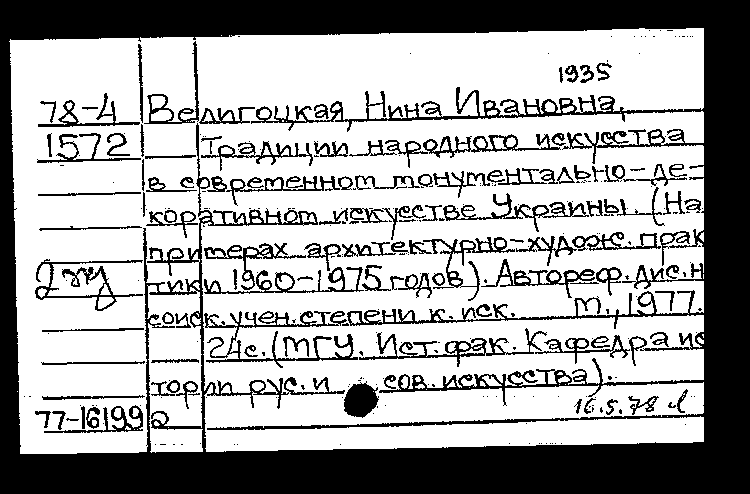 1935
78-4 Велигоцкая, Нина Ивановна,
1572 Традиции народного искусства
в современном монументально-де-
коративном искусстве Украины. (На
примерах архитектурно-худож. прак
тики 1960-1975 годов). Автореф. дис. н
соиск. учен. степени к. иск. М., 1977.
24с. (МГУ. Ист. фак. Кафедра ис
тории рус. и сов. искусства).
77-16199 16.5.78